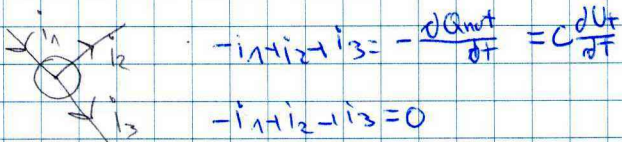 i₁
i₂
i₃
-i₁+i₂+i₃=-dQnut/dt = C dUt/dt
-i₁+i₂-i₃=0